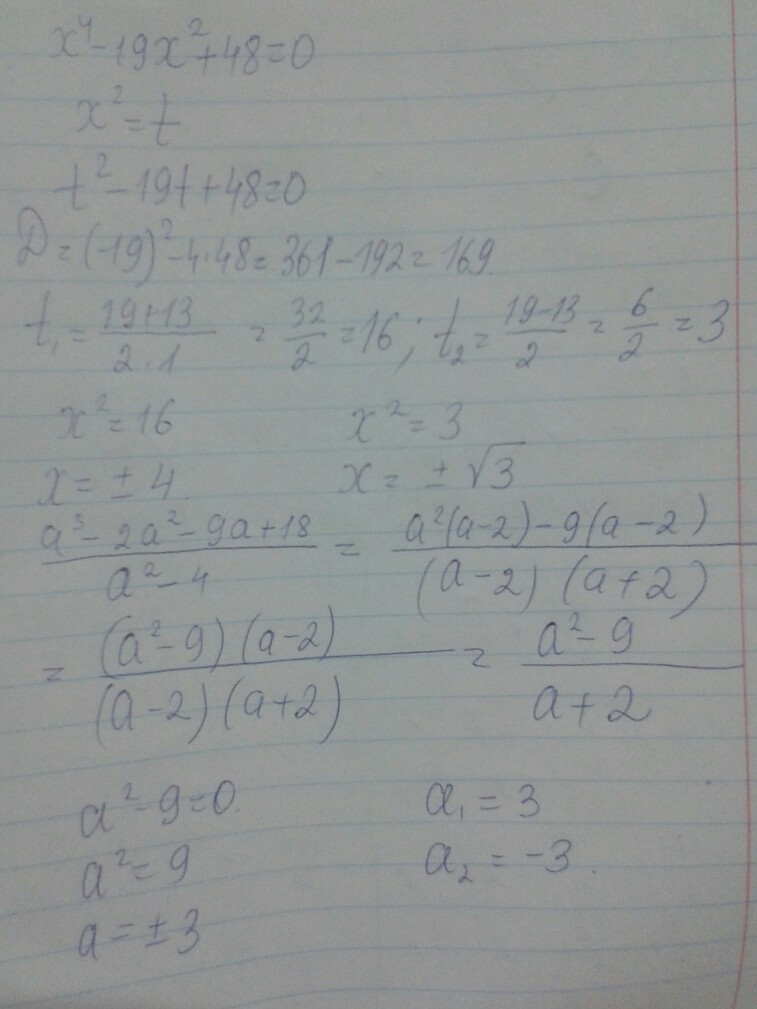 x⁴-19x²+48=0
x²=t
t²-19t+48=0
D=(-19)²-4·48=361-192=169
t₁=\frac{19+13}{2·1}=\frac{32}{2}=16; t₂=\frac{19-13}{2}=\frac{6}{2}=3
x²=16 x²=3
x=±4 x=±√3
\frac{a³-2a²-9a+18}{a²-4}=\frac{a²(a-2)-9(a-2)}{(a-2)(a+2)}
=\frac{(a²-9)(a-2)}{(a-2)(a+2)}=\frac{a²-9}{a+2}
a²-9=0. a₁=3
a²=9 a₂=-3.
a=±3